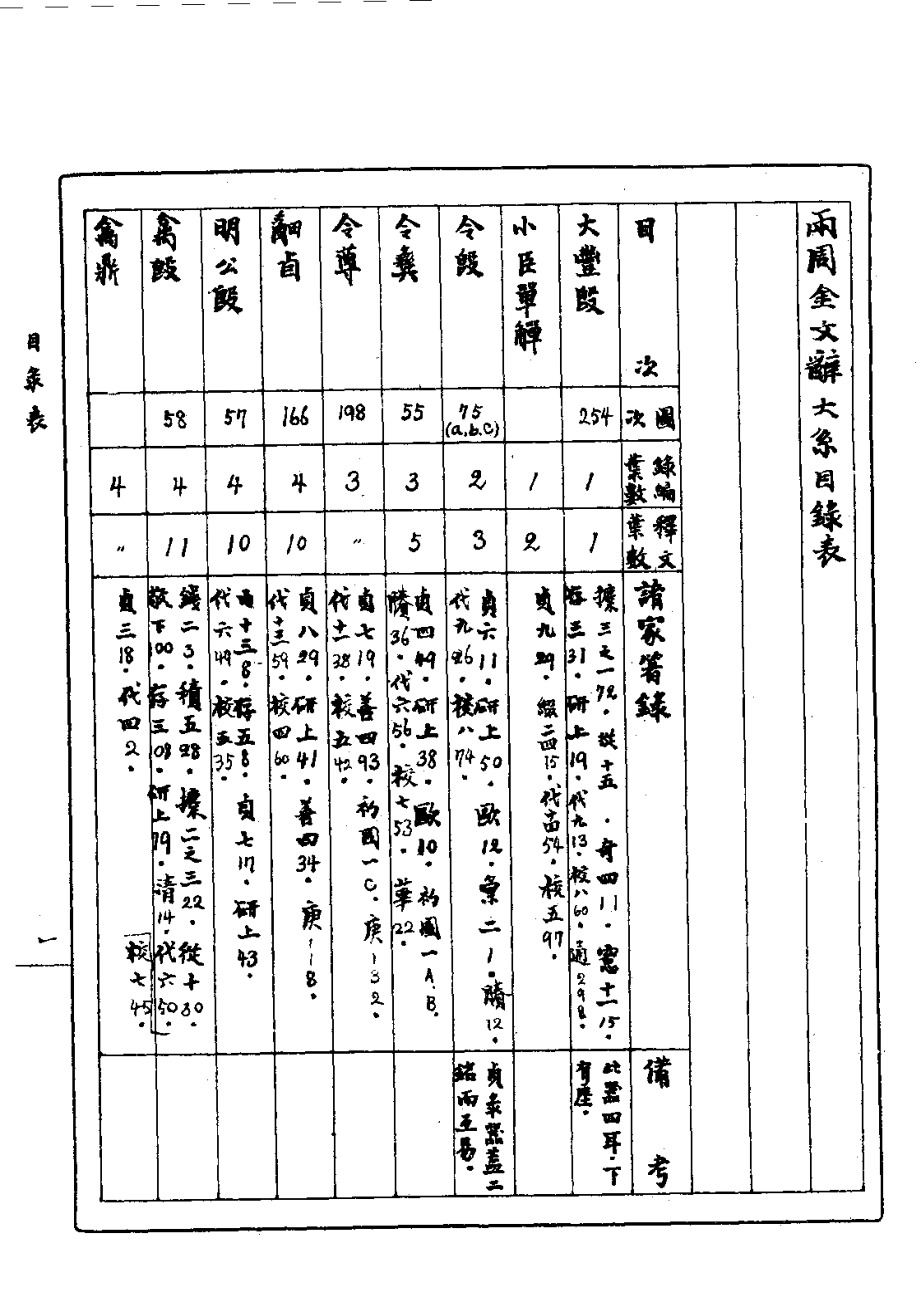 兩周金文辭大系目錄表
目次
圖次
錄編葉數
釋文葉數
諸家箸錄
備考
大豐𣪘
254
1
1
攈三之一72．從十五．奇四11．窓十一15．
存三31．研上19．代九13．校八60．通298．
此器四耳．下
有座．
小臣單觶
1
2
貞九29．綴二四15．代十四54．校五97．
令𣪘
75
(a,b,c)
2
3
貞六11．研上50．歐12．彙二1．賸12．
代九26．校八74．
貞彔器蓋二
銘而互易．
令彝
55
3
5
貞四49．研上38．歐10．初圖一A．B．
賸36．代六56．校七53．華22．
令尊
198
3
〃
貞七19．善四93．初圖一C．庚132．
代十一38．校五42．
卣
166
4
10
貞八29．研上41．善四34．庚118．
代十三59．校四60．
明公𣪘
57
4
10
西十三8．存五8．貞七17．研上43．
代六49．校五35．
禽𣪘
58
4
11
錢二3．積五28．攈二之三22．從十30．
敬下100．存三108．研上79．清14．代六50．
校七45．
禽鼎
4
〃
貞三18．代四2．
目彔表
一